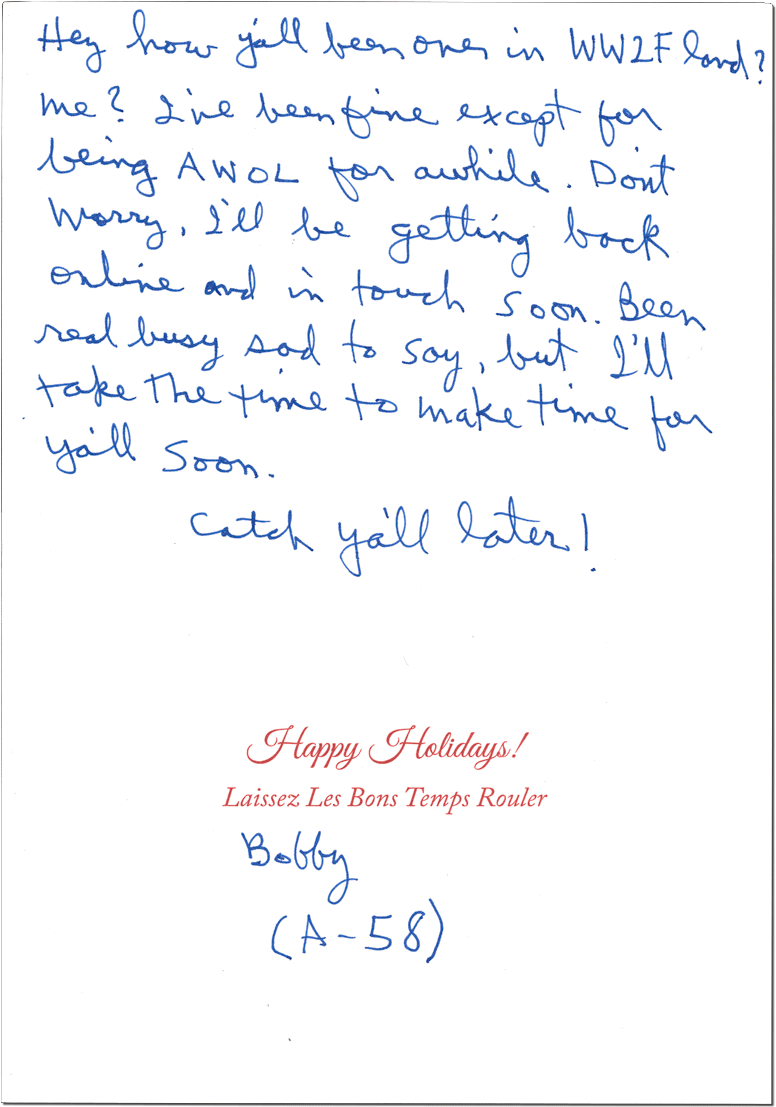 Hey how y'all been over in WW2F land?
me? I've been fine except for
being AWOL for awhile. Don't
worry, I'll be getting back
online and in touch soon. Been
real busy sad to say, but I'll
take the time to make time for
ya'll soon.
Catch ya'll later!
Happy Holidays!
Laissez Les Bons Temps Rouler
Bobby
(A-58)